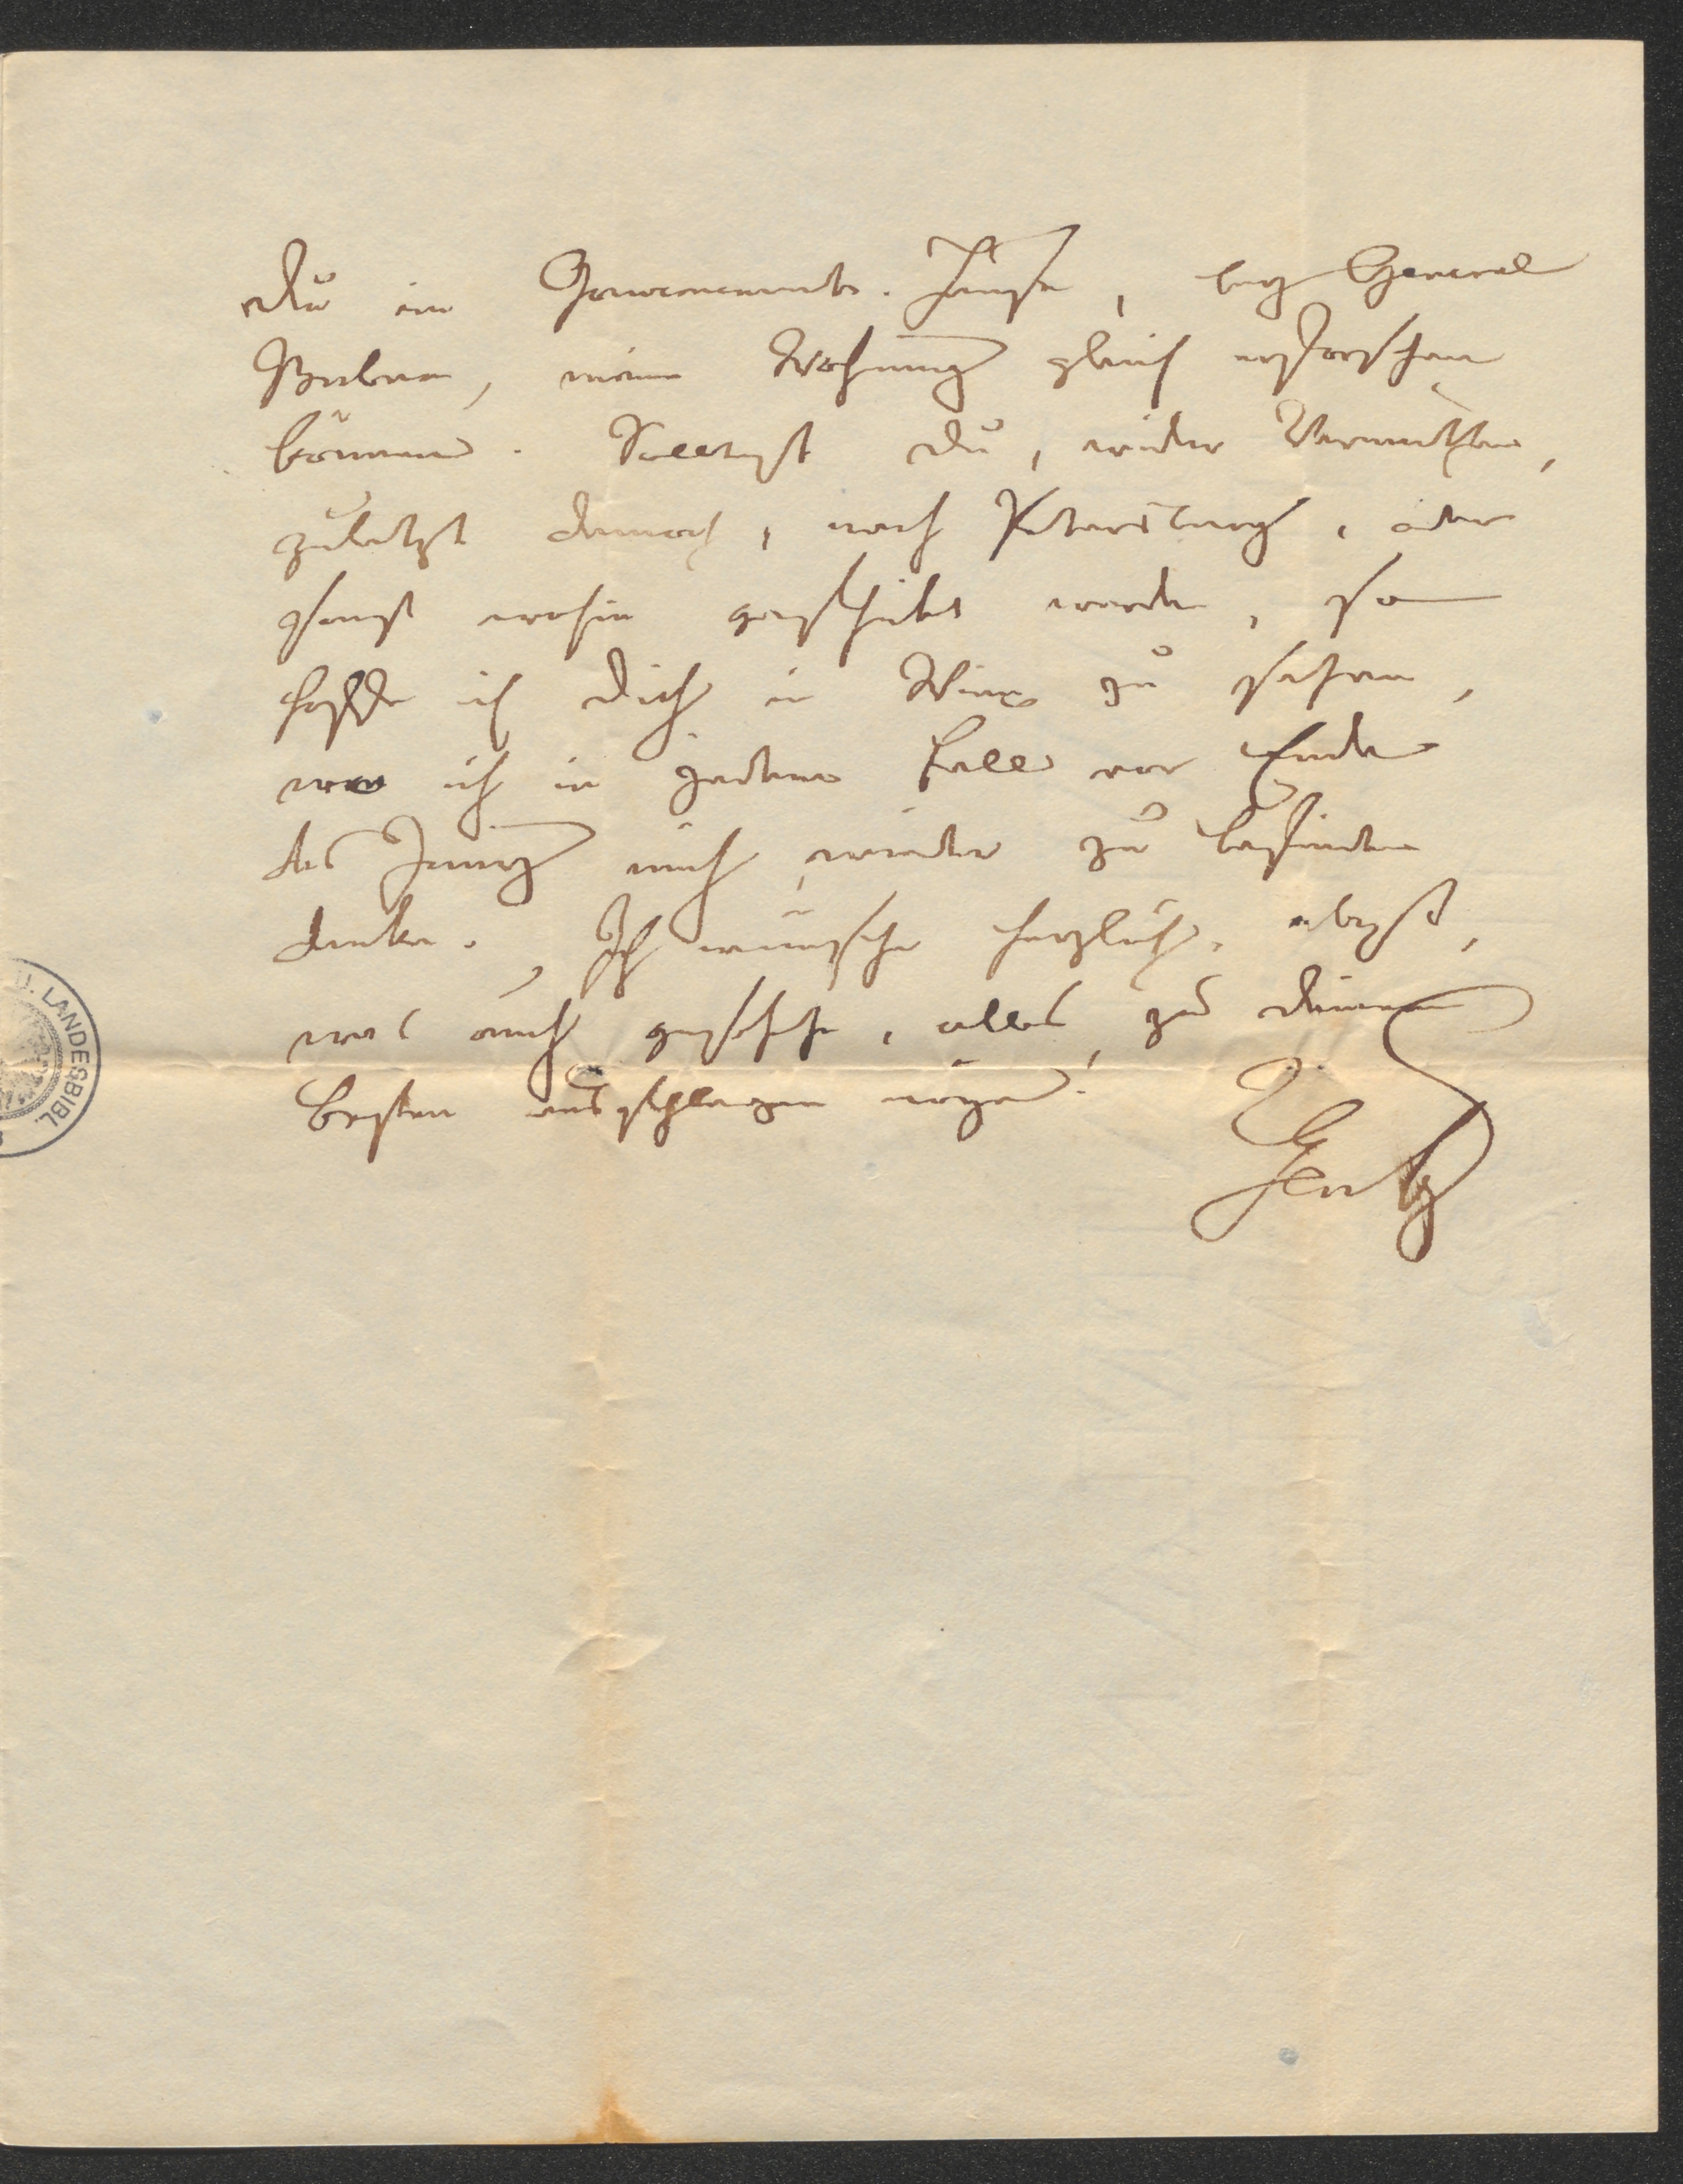 Du im Gouvernements-Hause, bey General
Bubna, meine Wohnung gleich erforschen
können. Solltest Du, wider Vermuthen,
zuletzt dennoch, nach Petersburg, oder
sonst wohin geschickt werden, so
hoffe ich Dich in Wien zu sehen,
wo ich in jedem Fall vor Ende
des Juny mich wieder zu befinden
denke. Ich wünsche herzlich, daß,
was auch geschehe, alles zu Deinem
besten ausschlagen möge.
Gentz
U. LANDESBIBL.